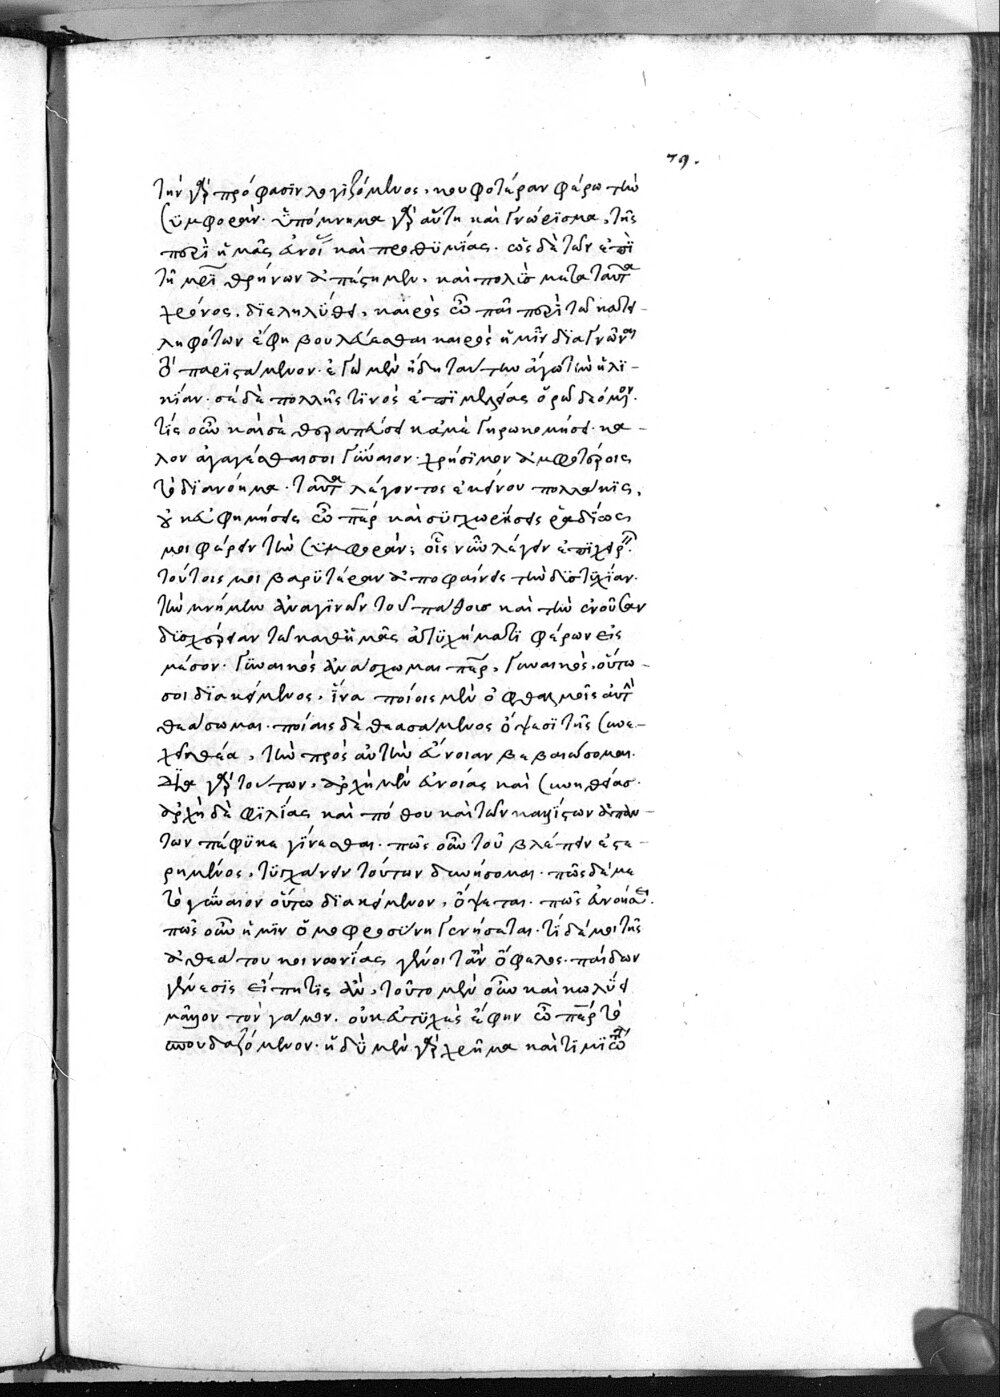 79.
τὴν γὰρ πρόφασιν λογιζόμενος, κουφοτέραν φέρω τὴν
συμφοράν. ὑπόμνημα γὰρ αὕτη καὶ γνώρισμα, τῆς
περὶ ἡμᾶς εὐνοί καὶ προθυμίας. ὡς δὲ τῶν ἐπὶ
τῇ μρὶ θρήνων ἀπέστημεν, καὶ πολὺς μετὰ ταῦτα
χρόνος, διεληλύθει, καιρὸς ὦ παῖ περὶ τῶν κατει-
ληφότων ἔφη βουλεύεσθαι καιρὸς ἡμῖν διαγνῶναι
παριστάμενον. ἐγὼ μὲν ἤδη ταύτην ἄγω τὴν ἡλι-
κίαν. σὲ δὲ πολλῆς τινὸς ἐπιμελείας ὁρῶ δεόμενον.
τίς οὖν καὶ σὲ θεραπεύσει κἀμὲ γηροκομήσει. κα-
λὸν ἀγαγέσθαι σοι γύναιον. χρήσιμον ἀμφοτέροις
τὸ διανόημα. ταῦτα λέγοντος ἐκείνου πολλάκις,
οὐκ εὐφημήσεις ὦ πάτερ καὶ συγχωρήσεις ῥαδίως
μοι φέρειν τὴν συμφοράν; οἷς νῦν λέγειν ἐπιχειρεῖς.
τούτοις μοι βαρυτέραν ἀποφαίνεις τὴν δυστυχίαν.
τὴν μνήμην ἀνακινῶν τοῦ πάθους καὶ τὴν ἐνοῦσαν
δυσχέρειαν τῷ καθ' ἡμᾶς ἀτυχήματι φέρων εἰς
μέσον. γυναικὸς ἀνάσχωμαι πάτερ, γυναικὸς, οὕτω-
σοι διακείμενος, ἵνα ποίοις μὲν ὀφθαλμοῖς αὐτὴν
θεάσωμαι. ποίαις δὲ θεασάμενος ὄψεσι τῆς συνε-
χεῖ θέᾳ, τὴν πρὸς αὐτὴν εὔνοιαν βεβαιώσομαι.
θέα γὰρ τούτων, ἀρχὴ μὲν εὐνοίας καὶ συνηθείας.
ἀρχὴ δὲ φιλίας καὶ πόθου καὶ τῶν καλλίστων ἁπάν-
των πέφυκε γίνεσθαι. πῶς οὖν τοῦ βλέπειν ἐστε-
ρημένος, τυγχάνειν τούτων δυνήσομαι. πῶς δέ με
τὸ γύναιον οὕτω διακείμενον, ὄψεται. πῶς εὐνοήσει.
πῶς οὖν ἡμῖν ὁμοφροσύνη γενήσεται. τί δέ μοι τῆς
ἀθεάτου κοινωνίας γένοιτ' ἂν ὄφελος. παίδων
γένεσις εἴπῃ τις ἄν, τοῦτο μὲν οὖν καὶ κωλύει
μᾶλλον τὸν γάμον. οὐκ εὐτυχὲς ἔφην ὦ πάτερ τὸ
σπουδαζόμενον. ἡδὺ μὲν γὰρ χρῆμα καὶ τιμιώτατον